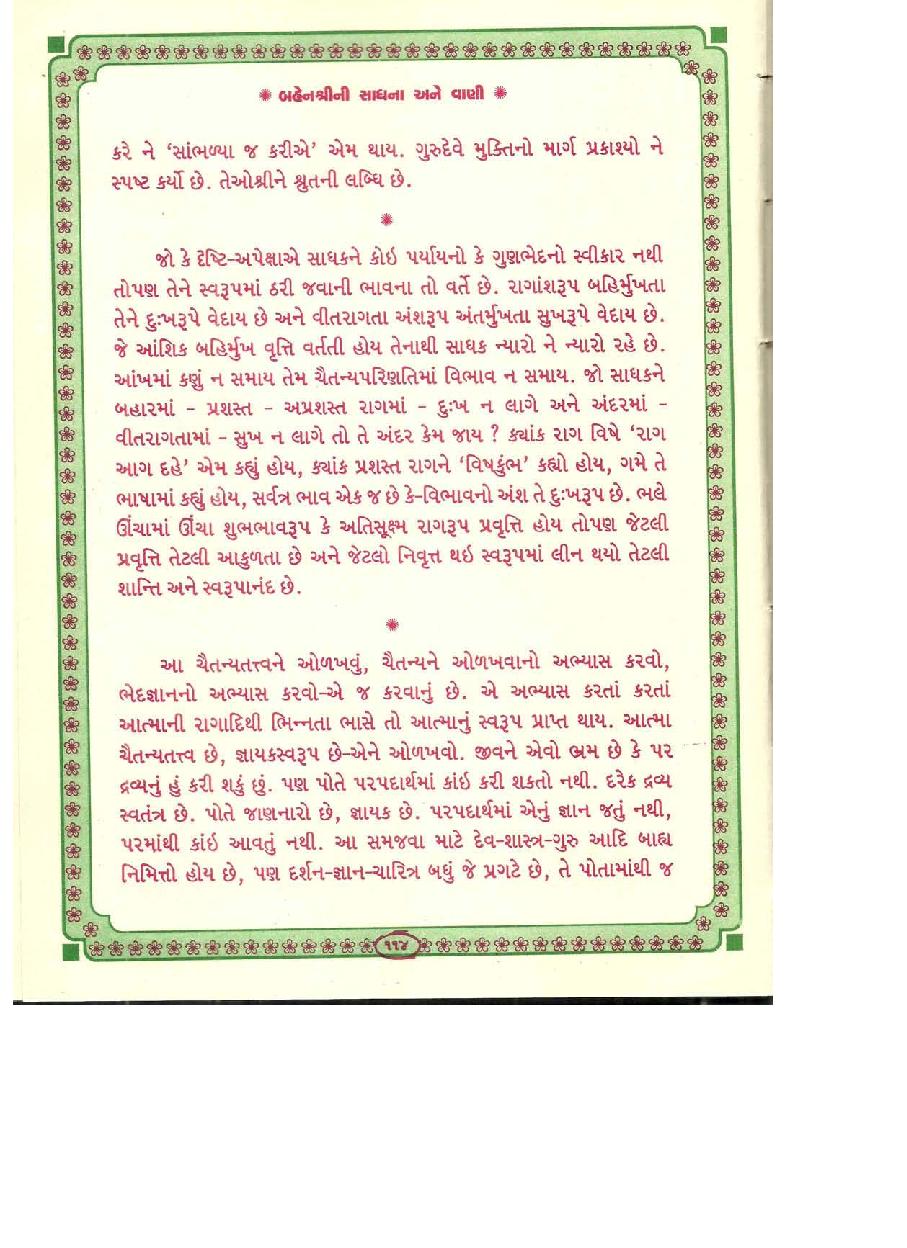 ✺ બહેનશ્રીની સાધના અને વાણી ✺
કરે ને ‘સાંભળ્યા જ કરીએ’ એમ થાય. ગુરુદેવે મુક્તિનો માર્ગ પ્રકાશ્યો ને
સ્પષ્ટ કર્યો છે. તેઓશ્રીને શ્રુતની લબ્ધિ છે.
✺
જો કે દૃષ્ટિ-અપેક્ષાએ સાધકને કોઇ પર્યાયનો કે ગુણભેદનો સ્વીકાર નથી
તોપણ તેને સ્વરૂપમાં ઠરી જવાની ભાવના તો વર્તે છે. રાગાંશરૂપ બહિર્મુખતા
તેને દુઃખરૂપે વેદાય છે અને વીતરાગતા અંશરૂપ અંતર્મુખતા સુખરૂપે વેદાય છે.
જે આંશિક બહિર્મુખ વૃત્તિ વર્તતી હોય તેનાથી સાધક ન્યારો ને ન્યારો રહે છે.
આંખમાં કણું ન સમાય તેમ ચૈતન્યપરિણતિમાં વિભાવ ન સમાય. જો સાધકને
બહારમાં - પ્રશસ્ત - અપ્રશસ્ત રાગમાં - દુઃખ ન લાગે અને અંદરમાં -
વીતરાગતામાં - સુખ ન લાગે તો તે અંદર કેમ જાય ? ક્યાંક રાગ વિષે ‘રાગ
આગ દહે’ એમ કહ્યું હોય, ક્યાંક પ્રશસ્ત રાગને ‘વિષકુંભ’ કહ્યો હોય, ગમે તે
ભાષામાં કહ્યું હોય, સર્વત્ર ભાવ એક જ છે કે-વિભાવનો અંશ તે દુઃખરૂપ છે. ભલે
ઊંચામાં ઊંચા શુભભાવરૂપ કે અતિસૂક્ષ્મ રાગરૂપ પ્રવૃત્તિ હોય તોપણ જેટલી
પ્રવૃત્તિ તેટલી આકુળતા છે અને જેટલો નિવૃત્ત થઇ સ્વરૂપમાં લીન થયો તેટલી
શાન્તિ અને સ્વરૂપાનંદ છે.
✺
આ ચૈતન્યતત્ત્વને ઓળખવું, ચૈતન્યને ઓળખવાનો અભ્યાસ કરવો,
ભેદજ્ઞાનનો અભ્યાસ કરવો-એ જ કરવાનું છે. એ અભ્યાસ કરતાં કરતાં
આત્માની રાગાદિથી ભિન્નતા ભાસે તો આત્માનું સ્વરૂપ પ્રાપ્ત થાય. આત્મા
ચૈતન્યતત્ત્વ છે, જ્ઞાયકસ્વરૂપ છે-એને ઓળખવો. જીવને એવો ભ્રમ છે કે પર
દ્રવ્યનું હું કરી શકું છું. પણ પોતે પરપદાર્થમાં કાંઇ કરી શકતો નથી. દરેક દ્રવ્ય
સ્વતંત્ર છે. પોતે જાણનારો છે, જ્ઞાયક છે. પરપદાર્થમાં એનું જ્ઞાન જતું નથી,
પરમાંથી કાંઇ આવતું નથી. આ સમજવા માટે દેવ-શાસ્ત્ર-ગુરુ આદિ બાહ્ય
નિમિત્તો હોય છે, પણ દર્શન-જ્ઞાન-ચારિત્ર બધું જે પ્રગટે છે, તે પોતામાંથી જ
૧૧૪